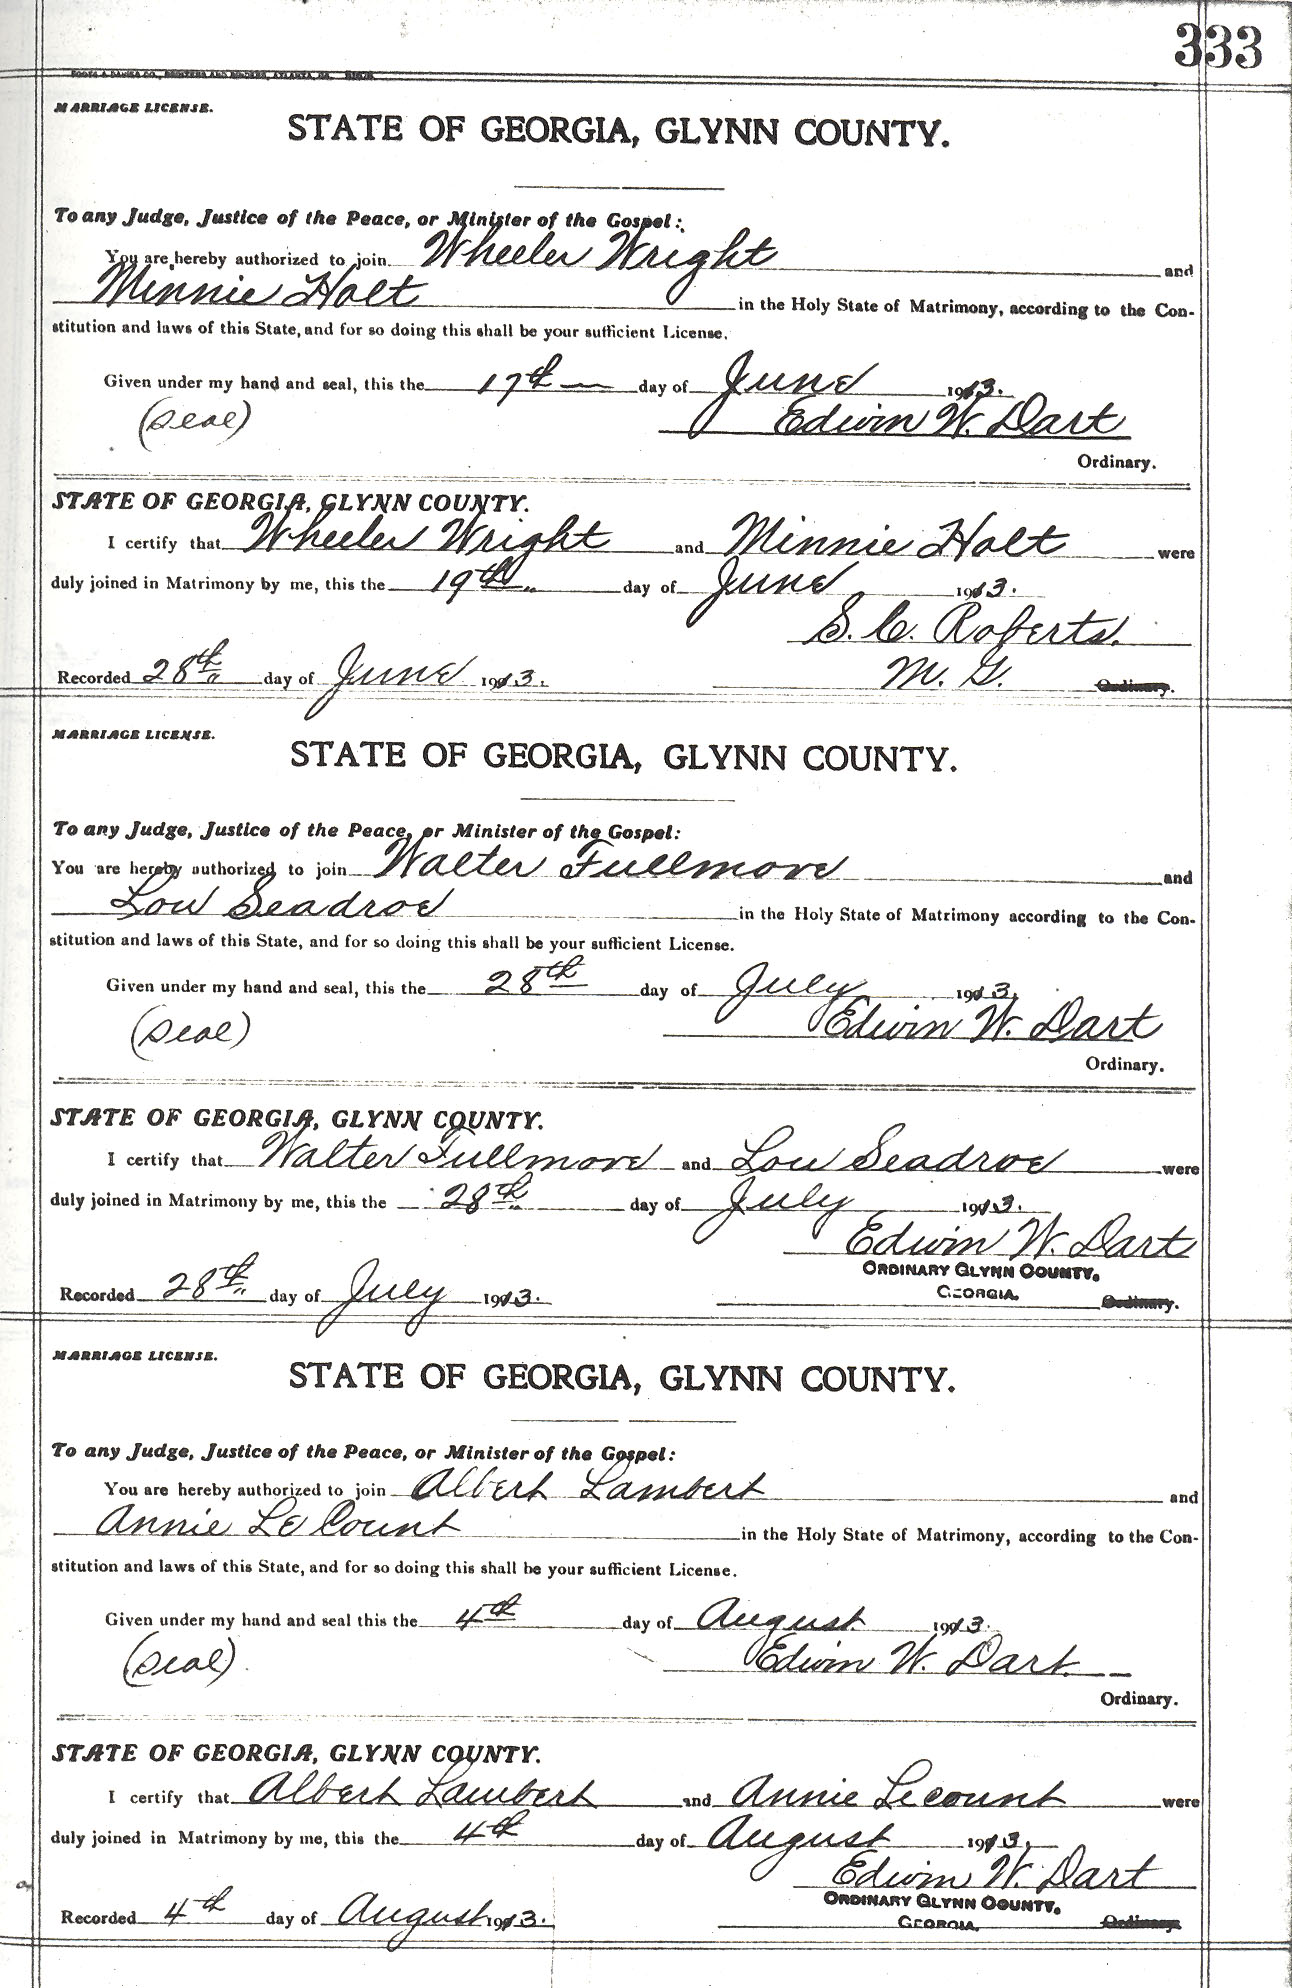 333
FOOTE & DAVIES CO., PRINTERS AND BINDERS, ATLANTA, GA.
MARRIAGE LICENSE.
STATE OF GEORGIA, GLYNN COUNTY.
To any Judge, Justice of the Peace, or Minister of the Gospel:
You are hereby authorized to join Wheeler Wright and
Minnie Holt in the Holy State of Matrimony, according to the Con-
stitution and laws of this State, and for so doing this shall be your sufficient License.
Given under my hand and seal, this the 17th day of June 1913.
(Seal) Edwin W. Dart
Ordinary.
STATE OF GEORGIA, GLYNN COUNTY.
I certify that Wheeler Wright and Minnie Holt were
duly joined in Matrimony by me, this the 19th day of June 1913.
S. C. Roberts.
Recorded 28th day of June 1913. M. G. Ordinary.
MARRIAGE LICENSE.
STATE OF GEORGIA, GLYNN COUNTY.
To any Judge, Justice of the Peace, or Minister of the Gospel:
You are hereby authorized to join Walter Fullmore and
Lou Seadroe in the Holy State of Matrimony according to the Con-
stitution and laws of this State, and for so doing this shall be your sufficient License.
Given under my hand and seal, this the 28th day of July 1913.
(Seal) Edwin W. Dart
Ordinary.
STATE OF GEORGIA, GLYNN COUNTY.
I certify that Walter Fullmore and Lou Seadroe were
duly joined in Matrimony by me, this the 28th day of July 1913.
Edwin W. Dart
ORDINARY GLYNN COUNTY,
Recorded 28th day of July 1913. GEORGIA. Ordinary.
MARRIAGE LICENSE.
STATE OF GEORGIA, GLYNN COUNTY.
To any Judge, Justice of the Peace, or Minister of the Gospel:
You are hereby authorized to join Albert Lambert and
Annie Le Count in the Holy State of Matrimony, according to the Con-
stitution and laws of this State, and for so doing this shall be your sufficient License.
Given under my hand and seal this the 4th day of August 1913.
(Seal) Edwin W. Dart
Ordinary.
STATE OF GEORGIA, GLYNN COUNTY.
I certify that Albert Lambert and Annie Lecount were
duly joined in Matrimony by me, this the 4th day of August 1913.
Edwin W. Dart
ORDINARY GLYNN COUNTY,
Recorded 4th day of August 1913. GEORGIA. Ordinary